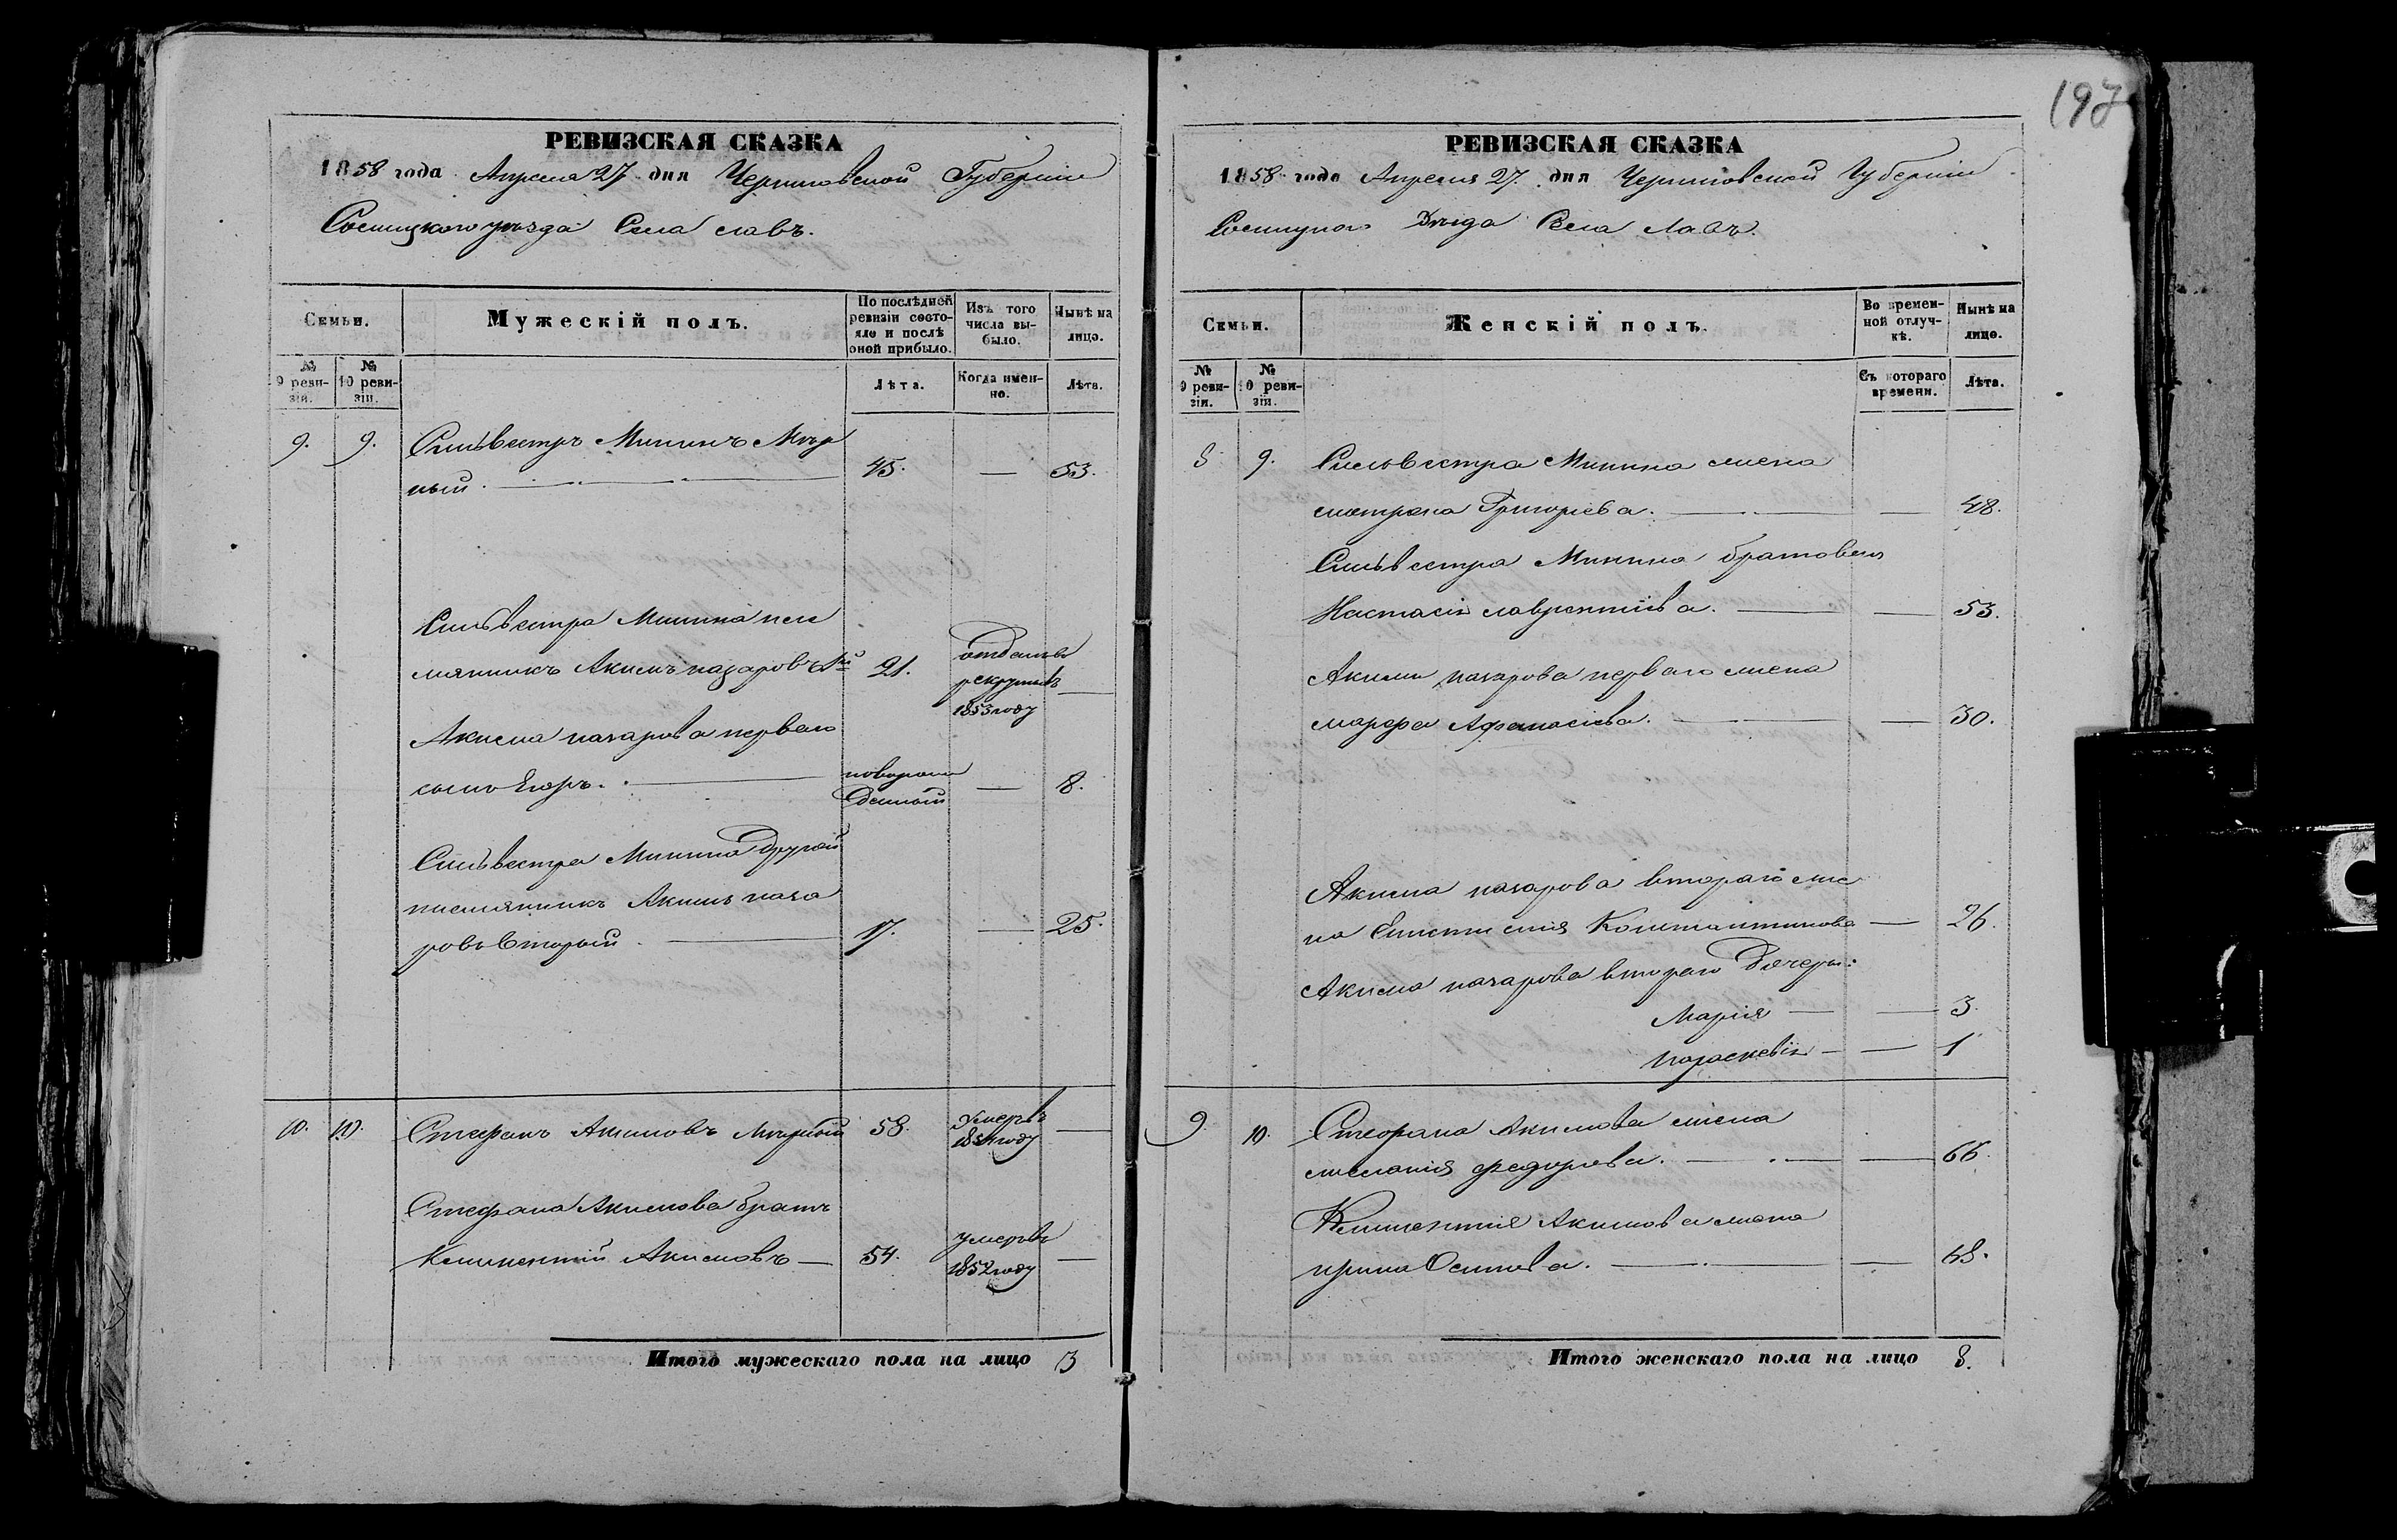 197
РЕВИЗСКАЯ СКАЗКА
1858 года Апреля 27 дня Черниговской Губернии
Сосницкого уезда Села Лавъ.
Семьи.
Мужескій полъ.
По послѣдней ревизіи состояло и послѣ оной прибыло.
Изъ того числа выбыло.
Нынѣ на лицо.
№ 9 ревизіи.
№ 10 ревизіи.
Лѣта.
Когда именно.
Лѣта.
9. 9. Сильвестръ Мининъ Мѣр
ный. 45. — 53.
Сильвестра Минина пле
мянникъ Акимъ Назаровъ 1й 21. отданъ въ
рекруты въ —
1853 году
Акима Назарова первого
сынъ Егоръ. новорож
денный — 8.
Сильвестра Минина Другой
племянникъ Акимъ Наза
ровъ Вторый. 17. — 25.
10. 10. Стефанъ Акимовъ Мѣрный 58. Умеръ въ —
году
Стефана Акимова братъ
Климентий Акимовъ — 54. умеръ въ —
1852 году
Итого мужескаго пола на лицо 3
РЕВИЗСКАЯ СКАЗКА
1858 года Апреля 27. дня Черниговской Губернии
Села Лавъ.
Семьи.
Женскій полъ.
Во временной отлучкѣ.
Нынѣ на лицо.
№ 9 ревизіи.
№ 10 ревизіи.
Съ котораго времени.
Лѣта.
8 9. Сильвестра Минина жена
Матрона Григориева. — 48.
Сильвестра Минина братовая
Настасія Лаврентіева. — 53.
Акима Назарова первого жена
Марфа Афанасиева. — 30.
Акима Назарова второго же
на Константинова — 26.
Акима Назарова второго Дочеры:
Мария — 3.
Параскевія — 1
9. 10. Стефана Акимова жена
Мелания Федорова. — 66.
Климентия Акимова жена
Ирина Осипова. —
Итого женскаго пола на лицо 8.